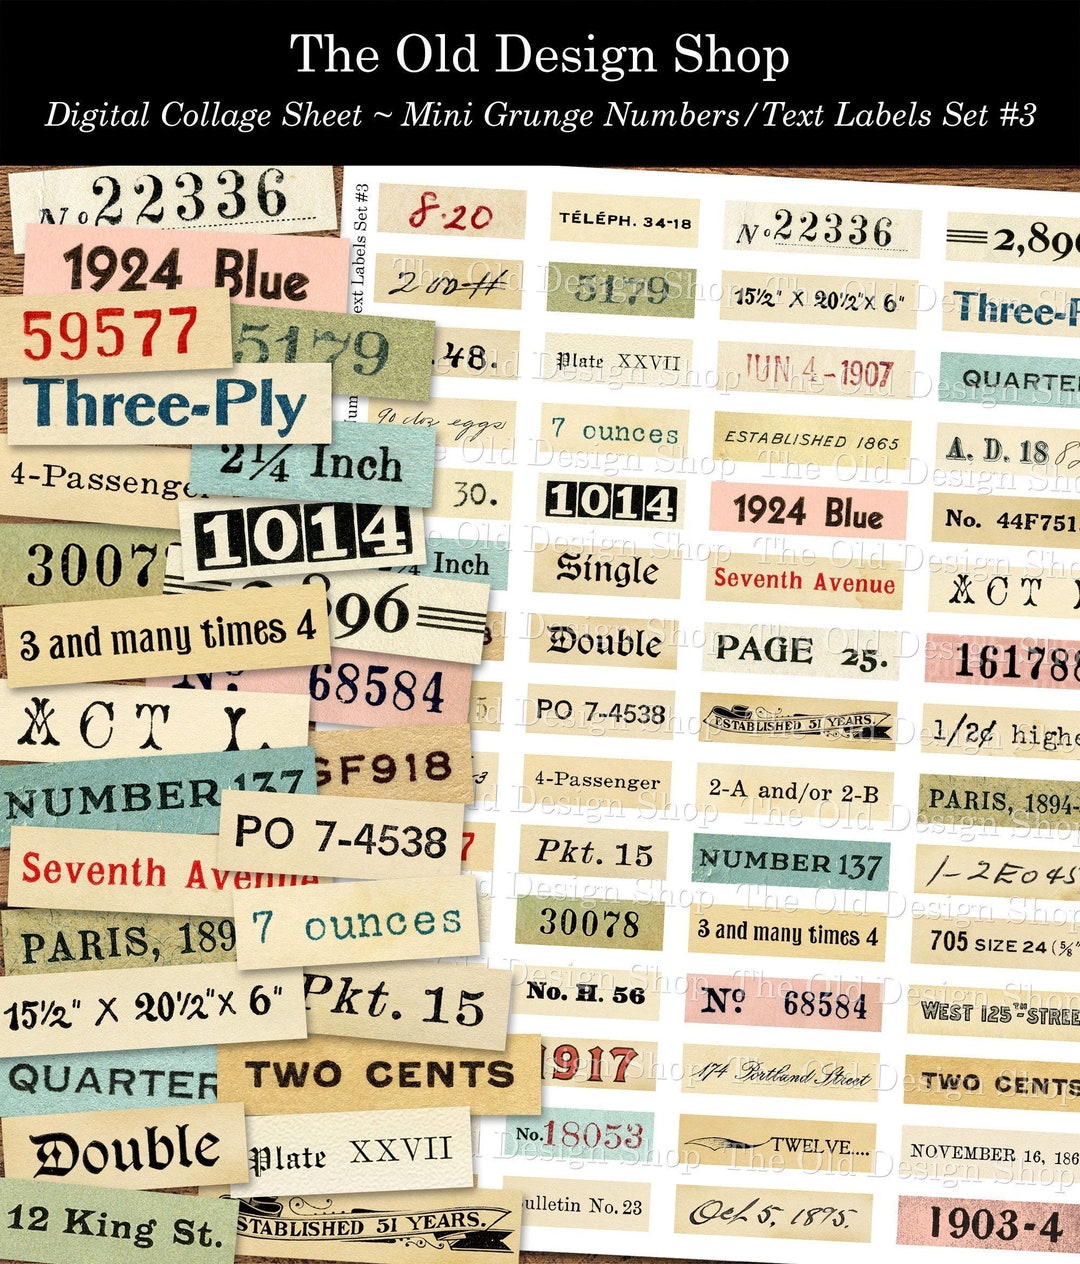 The Old Design Shop
Digital Collage Sheet ~ Mini Grunge Numbers/Text Labels Set #3
No 22336
1924 Blue
59577
5179
Three-Ply
2¼ Inch
4-Passenger
1014
3007
896
3 and many times 4
No. 68584
ACT I.
GF918
NUMBER 137
PO 7-4538
Seventh Avenue
7 ounces
PARIS, 189
15½" X 20½" X 6"
Pkt. 15
QUARTER
TWO CENTS
Double
Plate XXVII
12 King St.
ESTABLISHED 51 YEARS.
ext Labels Set #3
8.20
TÉLÉPH. 34-18
No 22336
2,896
200#
5179
15½" X 20½" X 6"
Three-P
.48.
Plate XXVII
JUN 4-1907
QUARTE
90 doz eggs
7 ounces
ESTABLISHED 1865
A. D. 18
30.
1014
1924 Blue
No. 44F751
¼ Inch
Single
Seventh Avenue
ACT I
Double
PAGE 25.
161788
5
PO 7-4538
ESTABLISHED 51 YEARS.
1/2¢ highe
4-Passenger
2-A and/or 2-B
PARIS, 1894-
7
Pkt. 15
NUMBER 137
1-2E045
30078
3 and many times 4
705 SIZE 24 (⅝"
No. H. 56
No. 68584
WEST 125TH STREE
1917
174 Portland Street
TWO CENTS
No. 18053
TWELVE....
NOVEMBER 16, 186
ulletin No. 23
Oct 5, 1895.
1903-4
The Old Design Shop